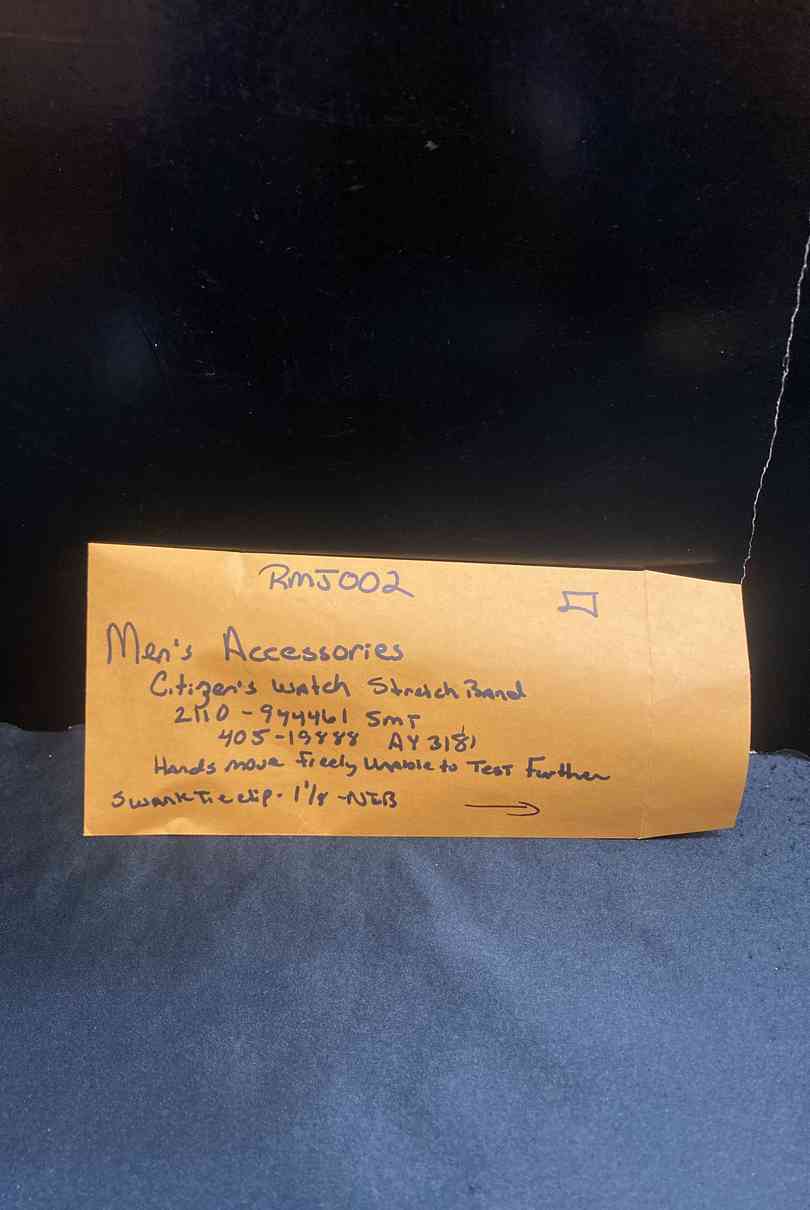 RMJ002
Men's Accessories
Citizen's Watch Stretch Band
2110-944461 SMT
405-19888 AY3181
Hands move freely Unable to Test Further
Swank Tie clip. 1 1/8 -NIB